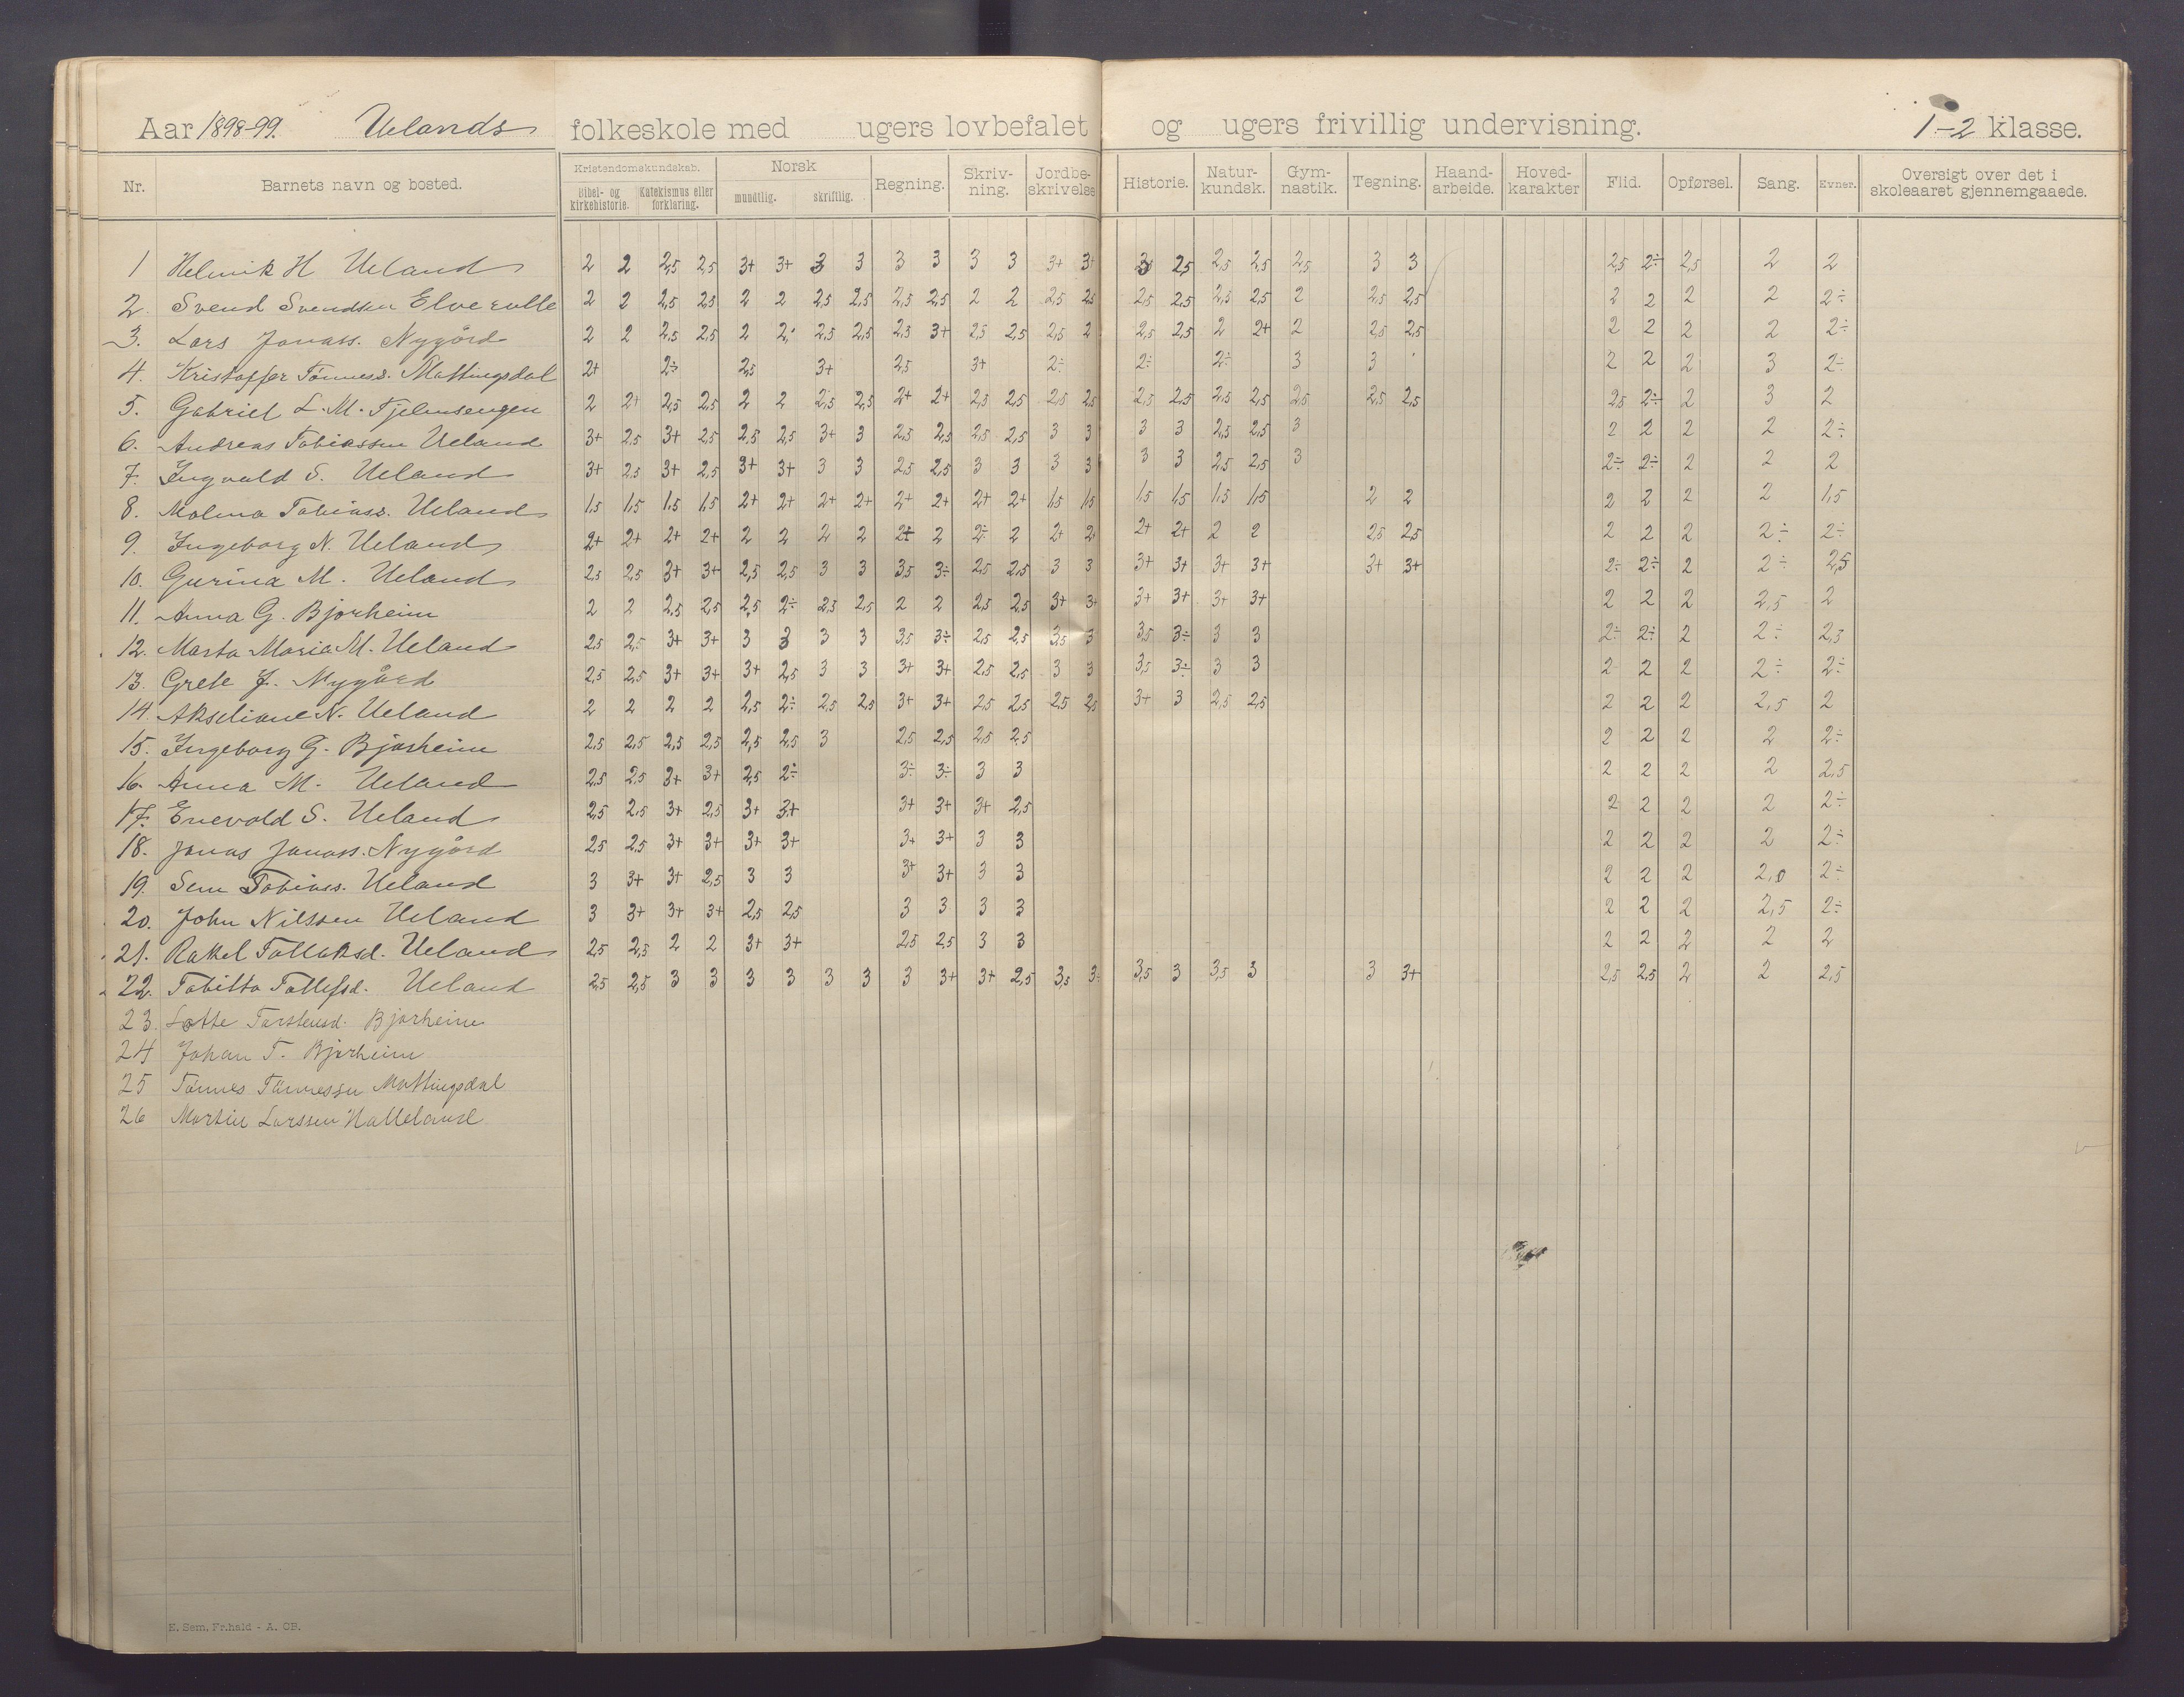 Aar 1898-99. Uelands folkeskole med ugers lovbefalet og ugers frivillig undervisning. 1-2 klasse.
Nr. Barnets navn og bosted. Kristendomskundskab. Bibel- og kirkehistorie. Katekismus eller forklaring. Norsk mundtlig. skriftlig. Regning. Skriv-ning. Jordbe-skrivelse Historie. Natur-kundsk. Gym-nastik. Tegning. Haand-arbeide. Hoved-karakter Flid. Opførsel. Sang. Evner. Oversigt over det i skoleaaret gjennemgaaede.
1 Helmik H Ueland 2 2 2,5 2,5 3+ 3+ 3 3 3 3 3 3 3+ 3+ 3 2,5 2,5 2,5 2,5 3 3 2,5 2÷ 2,5 2 2
2. Svend Svendsen 2 2 2,5 2,5 2 2 2,5 2,5 2,5 2,5 2 2 2,5 2,5 2,5 2,5 2,5 2,5 2 2,5 2,5 2 2 2 2 2÷
3. Lars Jonass. Nygård 2 2 2,5 2,5 2 2÷ 2,5 2,5 2,5 3+ 2,5 2,5 2,5 2 2,5 2,5 2 2+ 2 2,5 2,5 2 2 2 2 2÷
4. Kristoffer Tönness. Mattingsdal 2+ 2÷ 2,5 3+ 2,5 3+ 2÷ 2÷ 2÷ 3 3 2 2 2 3 2÷
5. Gabriel L. M. Tjelmsengen 2 2+ 2,5 2,5 2 2 2,5 2,5 2+ 2+ 2,5 2,5 2,5 2,5 2,5 2,5 2,5 2,5 2,5 2,5 2,5 2,5 2÷ 2 3 2
6. Andreas Tobiassen Ueland 3+ 2,5 3+ 2,5 2,5 2,5 3+ 3 2,5 2,5 2,5 2,5 3 3 3 3 2,5 2,5 3 2 2 2 2 2÷
7. Ingvald S. Ueland 3+ 2,5 3+ 2,5 3+ 3+ 3 3 2,5 2,5 3 3 3 3 3 3 2,5 2,5 3 2÷ 2÷ 2 2 2
8. Malena Tobiass. Ueland 1,5 1,5 1,5 1,5 2+ 2+ 2+ 2+ 2+ 2+ 2+ 2+ 1,5 1,5 1,5 1,5 1,5 1,5 2 2 2 2 2 2 1,5
9. Ingeborg N. Ueland 2+ 2+ 2+ 2+ 2 2 2 2 2+ 2 2÷ 2 2+ 2 2+ 2+ 2 2 2,5 2,5 2 2 2 2÷ 2÷
10. Gurina M. Ueland 2,5 2,5 3+ 3+ 2,5 2,5 3 3 3,5 3÷ 2,5 2,5 3 3 3+ 3+ 3+ 3+ 3+ 3+ 2÷ 2÷ 2 2÷ 2,5
11. Anna G. Bjorheim 2 2 2,5 2,5 2,5 2÷ 2,5 2,5 2 2 2,5 2,5 3+ 3+ 3+ 3+ 3+ 3+ 2 2 2 2,5 2
12. Marta Maria M. Ueland 2,5 2,5 3+ 3+ 3 3 3 3 3,5 3÷ 2,5 2,5 3,5 3 3,5 3÷ 3 3 2÷ 2÷ 2 2÷ 2,5
13. Grete J. Nygård 2,5 2,5 3+ 3+ 3+ 2,5 3 3 3+ 3+ 2,5 2,5 3 3 3,5 3÷ 3 3 2 2 2 2÷ 2÷
14. Akseliane N. Ueland 2 2 2 2 2,5 2÷ 2,5 2,5 3+ 3+ 2,5 2,5 2,5 2,5 3+ 3 2,5 2,5 2 2 2 2,5 2
15. Ingeborg G. Bjorheim 2,5 2,5 2,5 2,5 2,5 2,5 3 2,5 2,5 2,5 2,5 2 2 2 2 2÷
16. Anna M. Ueland 2,5 2,5 3+ 3+ 2,5 2÷ 3÷ 3÷ 3 3 2 2 2 2 2,5
17. Enevald S. Ueland 2,5 2,5 3+ 2,5 3+ 3+ 3+ 3+ 3+ 2,5 2 2 2 2 2÷
18. Jonas Jonass. Nygård 2,5 2,5 3+ 3+ 3+ 3+ 3+ 3+ 3 3 2 2 2 2 2÷
19. Sem Tobiass. Ueland 3 3+ 3+ 2,5 3 3 3+ 3+ 3 3 2 2 2 2,0 2÷
20. John Nilssen Ueland 3 3+ 3+ 3+ 2,5 2,5 3 3 3 3 2 2 2 2,5 2÷
21. Rakel Tollaksd. Ueland 2,5 2,5 2 2 3+ 3+ 2,5 2,5 3 3 2 2 2 2 2
22. Tabitta Tollefsd. Ueland 2,5 2,5 3 3 3 3 3 3 3 3+ 3+ 2,5 3,5 3÷ 3,5 3 3,5 3 3 3+ 2,5 2,5 2 2 2,5
23. Lotte Torstensd. Bjorheim
24 Johan T. Bjorheim
25 Tönnes Tönnessen Mattingsdal
26 Martin Larssen Halleland
E. Sem, Fr.hald - A. CB.